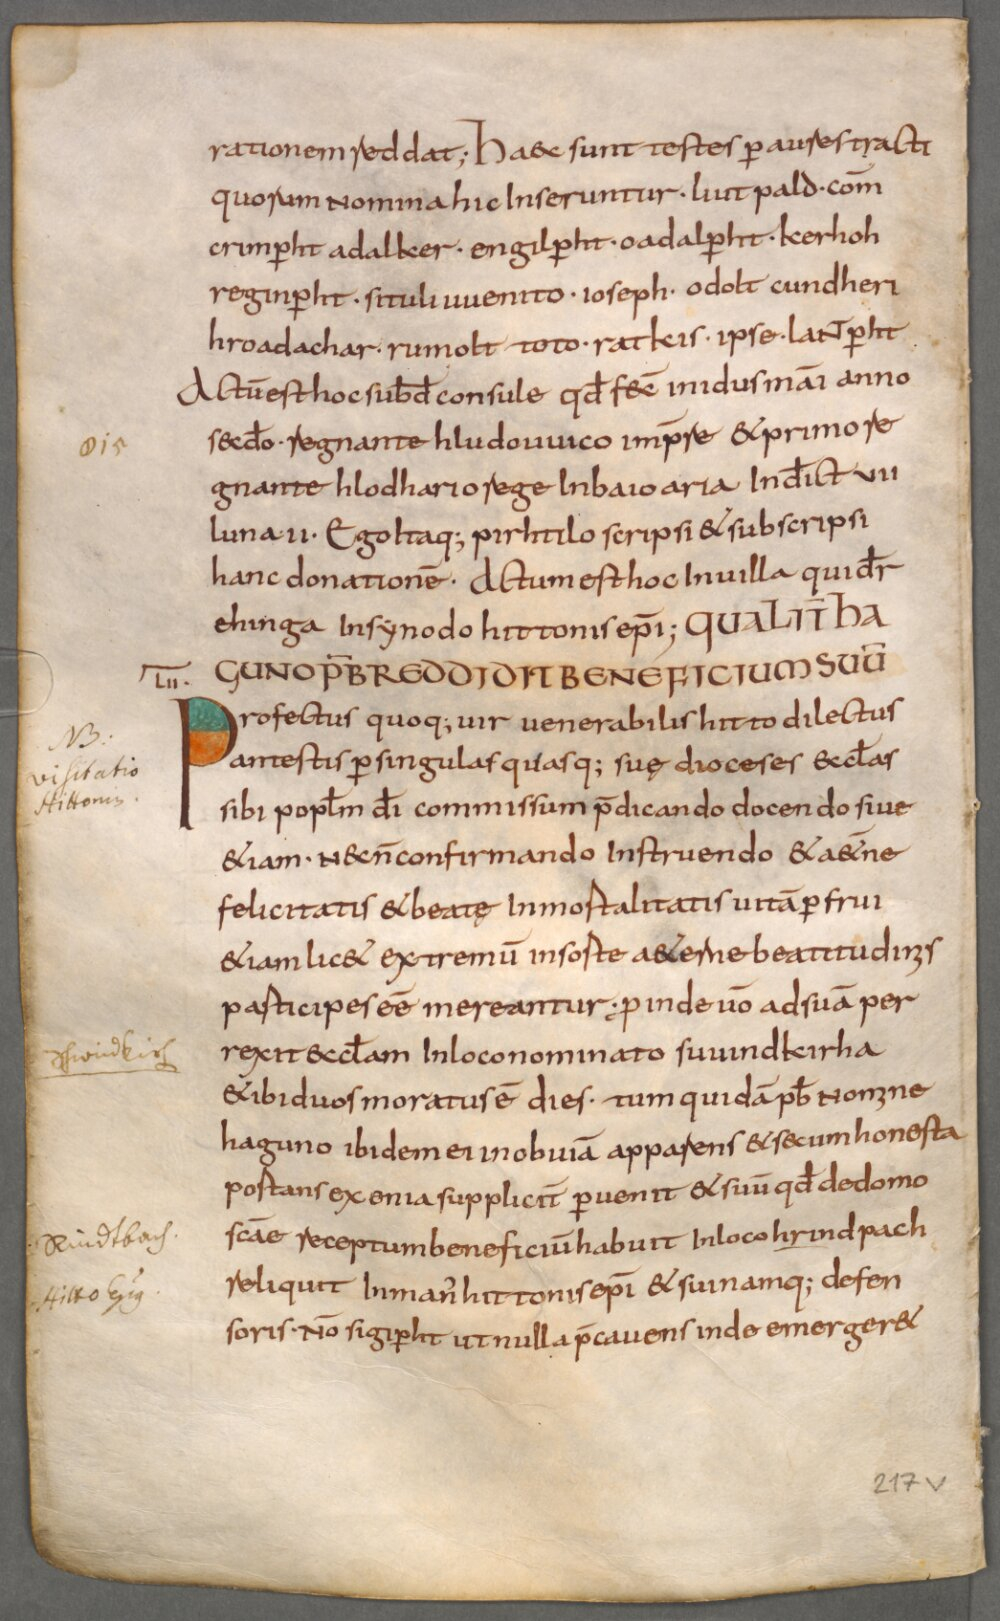 rationem reddat; Haec sunt testes p aures tracti
quorum nomina hic Inseruntur · liutpald · com̄
crimp̄ht adalker · engilp̄ht · oadalp̄ht · kerhoh
reginp̄ht · situli uuenito · ioseph · odolt cundheri
hroadachar · rumolt toto · ratkis · ipse · lantp̄ht
Actū est hoc sub d̄ consule qd̄ fec̄ in idus mā̄i anno
815
sec̄do · regnante hludouuico imp̄re & primo re
gnante hlodhario rege In baioaria Ind̄ict VII
luna II · Ego ltaq; pirhtilo scripsi & subscripsi
hanc donationē · Actum est hoc In uilla qui d̄r
ehinga In synodo hittonis ep̄i; QUALIT̄ HA
LII. GUNO PR̄B REDDIDIT BENEFICIUM SUŪ
Profectus quoq; uir uenerabilis hitto dilectus
NB:
antestis p singulas quasq; suę dioceses eccl̄as
visitatio
Hittonis.
sibi popl̄m d̄i commissum p̄dicando docendo siue
&iam · necn̄ confirmando Instruendo & aet̄ne
felicitatis & beatę Inmortalitatis uitā p frui
&iam lic& extremū in sorte aeterne beatitudinis
participes eē mereantur · p inde uō ad suā per
rexit eccl̄am In loco nominato suuindkirha
Schwindkirch
& ibi duos moratus ē dies · tum quidā pb̄ nomine
haguno ibidem ei in obuiā apparens & secum honesta
portans exenia supplicit̄ p uenit & suū qd̄ de domo
scāe receptum beneficiū habuit In loco hrindpach
Rindtbach.
reliquit In man̄ hittonis ep̄i & sui namq; defen
Hitto
soris · Nō sigip̄ht ut nulla p̄cauens inde emerger&
217 v